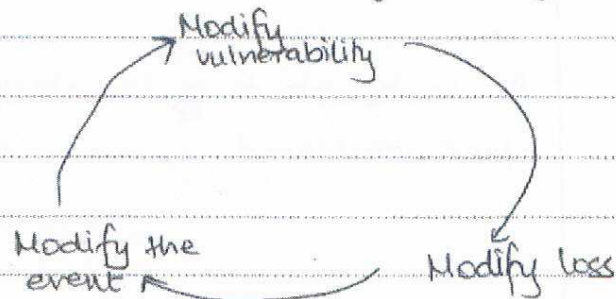 Modify
vulnerability
Modify the
event
Modify loss